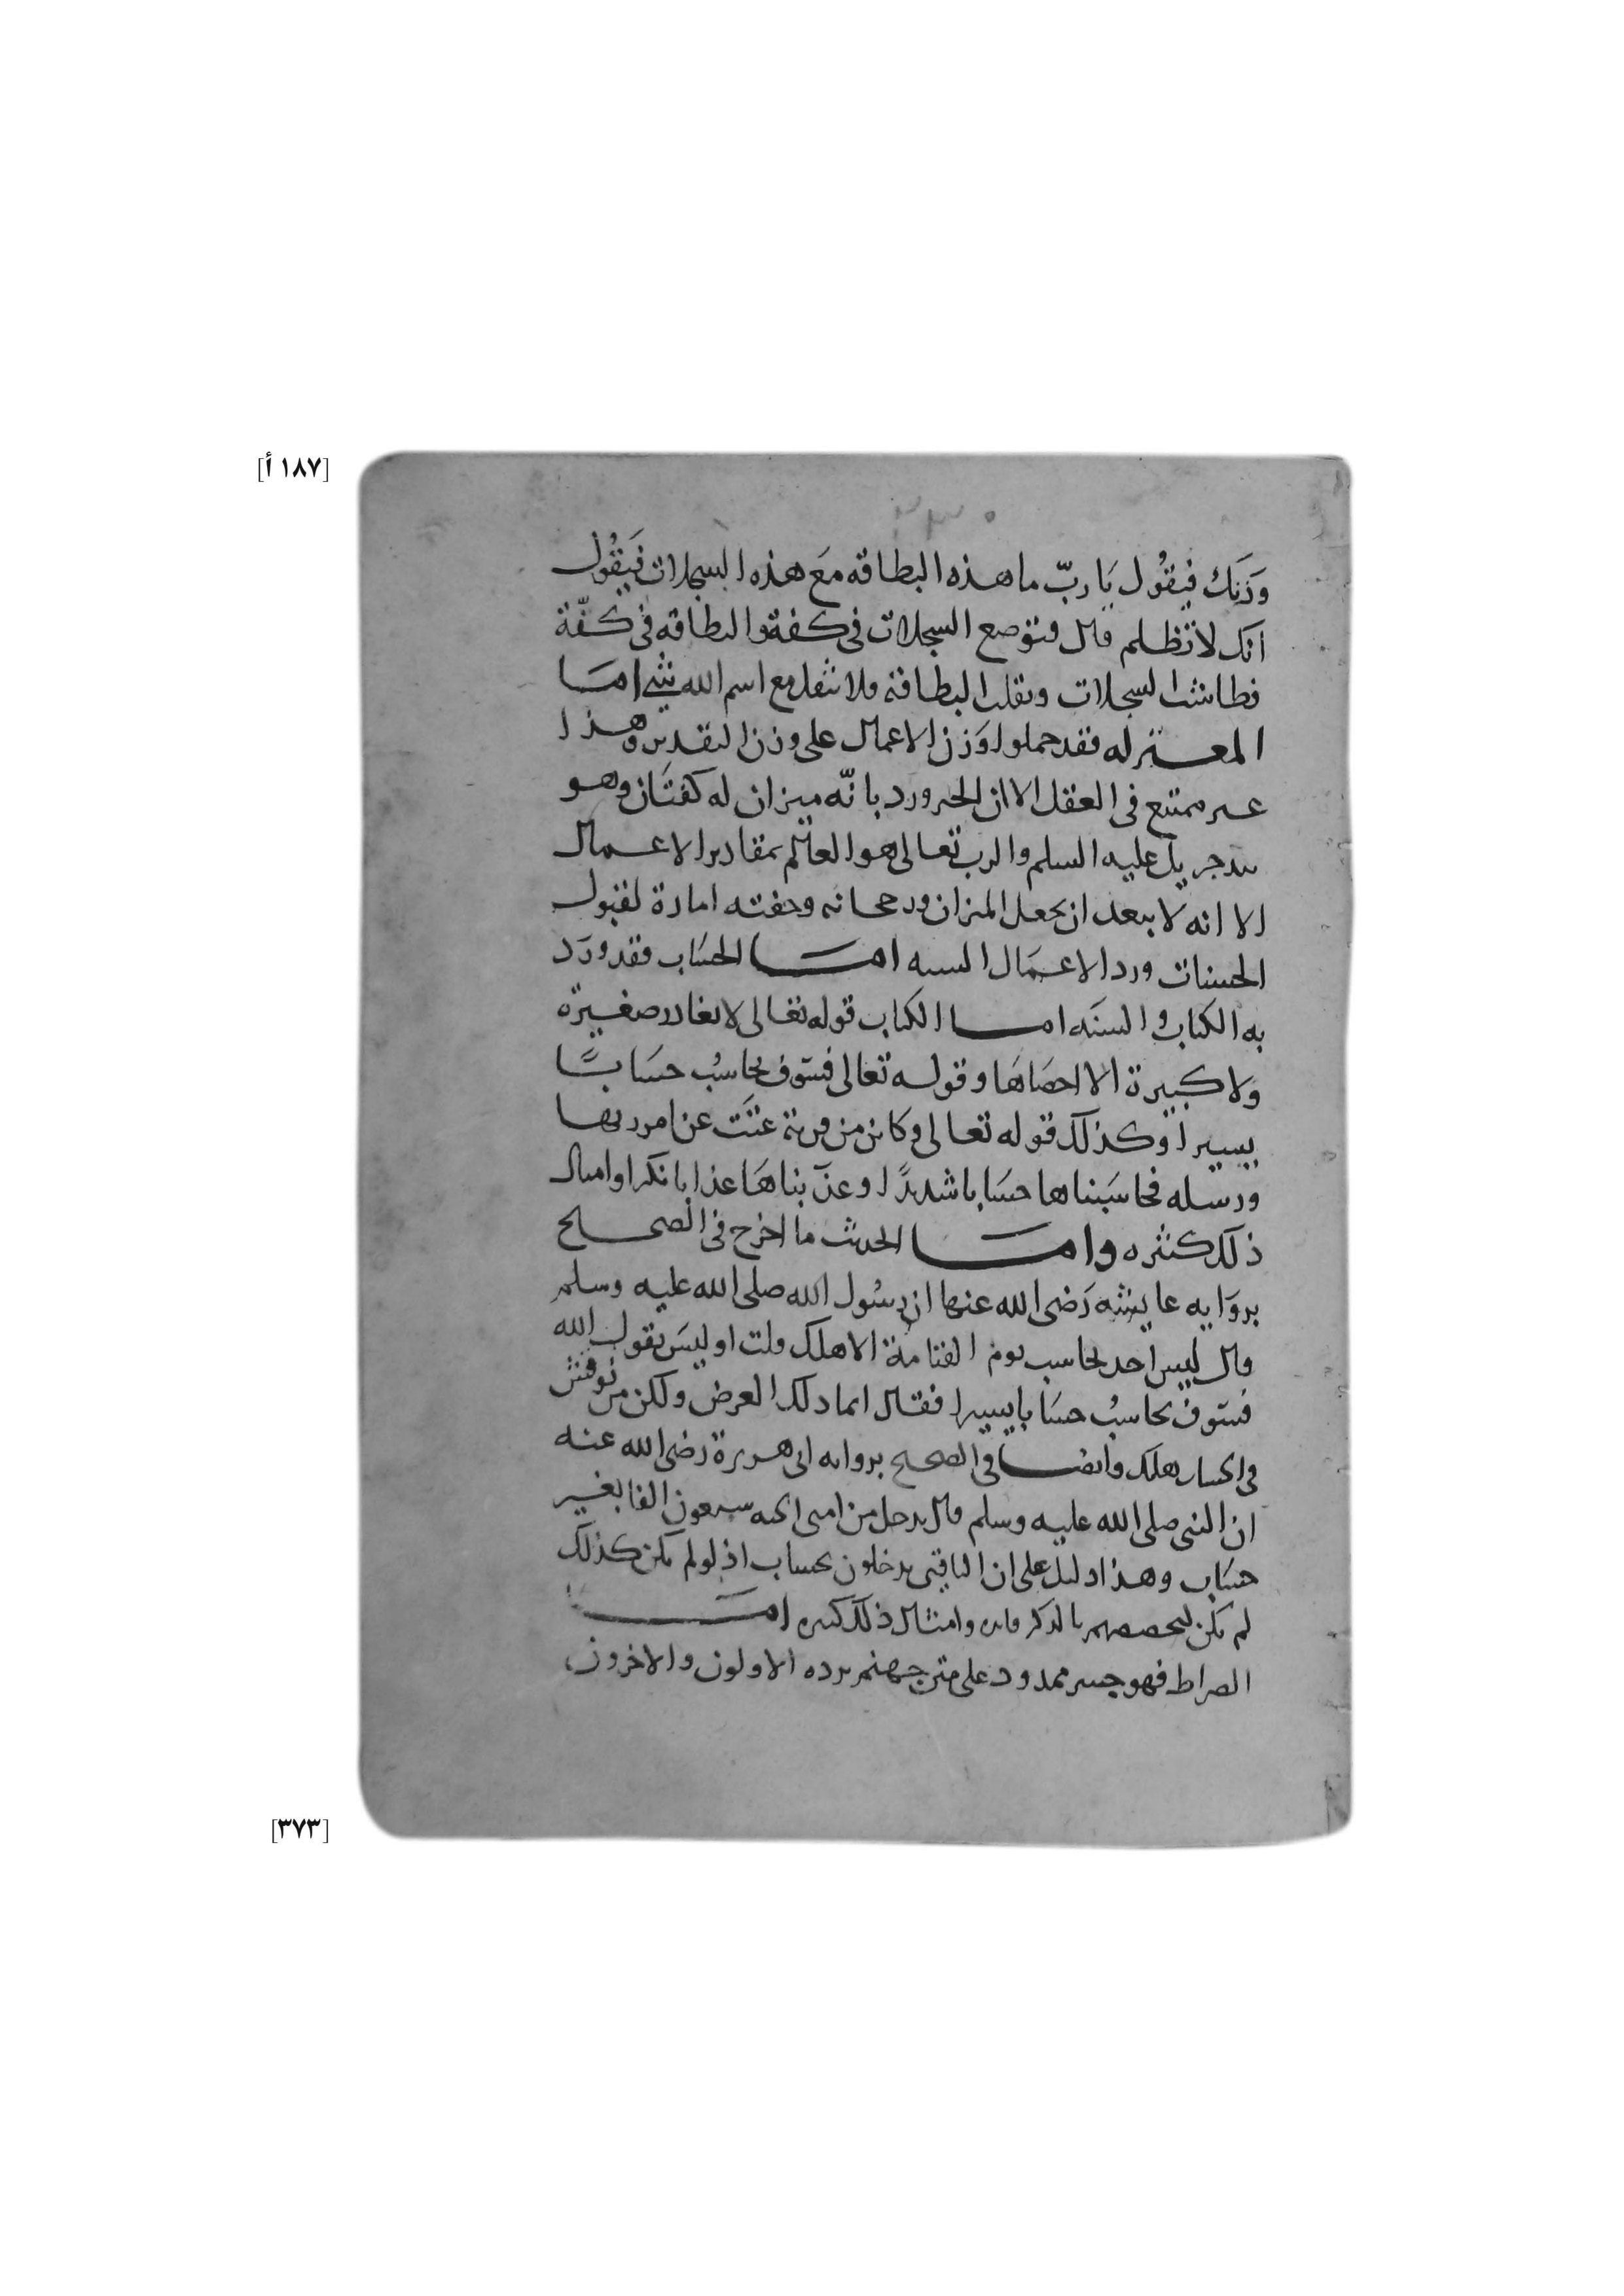 [١٨٧ أ]
وَزَنَك فيقُول يَا ربّ ما هذه البطاقه مَع هذه السجلات فَيَقُول
انك لا تظلم قال فتوضع السجلات فى كفة والبطاقه فى كفّة
فطاشت السجلات وثقلت البطاقة فلا يثقل مع اسم الله شي امَا
المعتزله فقد حملوا وَزن الاعمال على وزن التقدير وهذا
غير ممتنع فى العقل الا ان الخبر ورد بانّه ميزان له كفتَان وهو
بيد جبريل عليه السلم والرب تعالى هو العالم بمقادير الاعمال
الا انه لا يبعد ان يجعل الميزان ورجحانه وخفته امارة لقبول
الحسنات ورد الاعمَال السيه امَا الحسَاب فقد ورَد
به الكتاب والسنَه اما الكتاب قوله تعالى لا يغادر صغيرة
ولا كبيرة الا احصَاهَا وقوله تعالى فسَوف يحاسَبُ حسَابًا
يسيرا وكذلك قوله تعالى وكاين من قرية عتَت عن امر ربها
ورسله فحاسَبناها حسَابا شديدًا وعذّبناهَا عذابا نكرا وامثال
ذلك كثيره وامَا الحديث ما اخرج فى الصحيح
بروَايه عايشه رَضى الله عنها ان رسُول الله صلى الله عليه وسلم
قال ليس احد يحاسب يوم القيامة الا هلك قلت اوليسَ يقول الله
فسَوف يحاسَبُ حسَابا يسيرا فقال انما ذلك العرض ولكن من نوقش
فى الحساب يهلك وايضا فى الصحيح بروايه ابى هريرة رضى الله عنه
ان النبى صلى الله عليه وسلم قال يدخل من امتى الجنه سبعون الفا بغير
حسَاب وهذا دليل على ان الباقى يدخلون بحساب اذ لو لم يكن كذلك
لم يكن لتخصيصهم بالذكر فايده وامثال ذلك كثيره امَا
الصراط فهو جسر ممدود على متن جهنم يرده الاولون والاخرون
[٣٧٣]